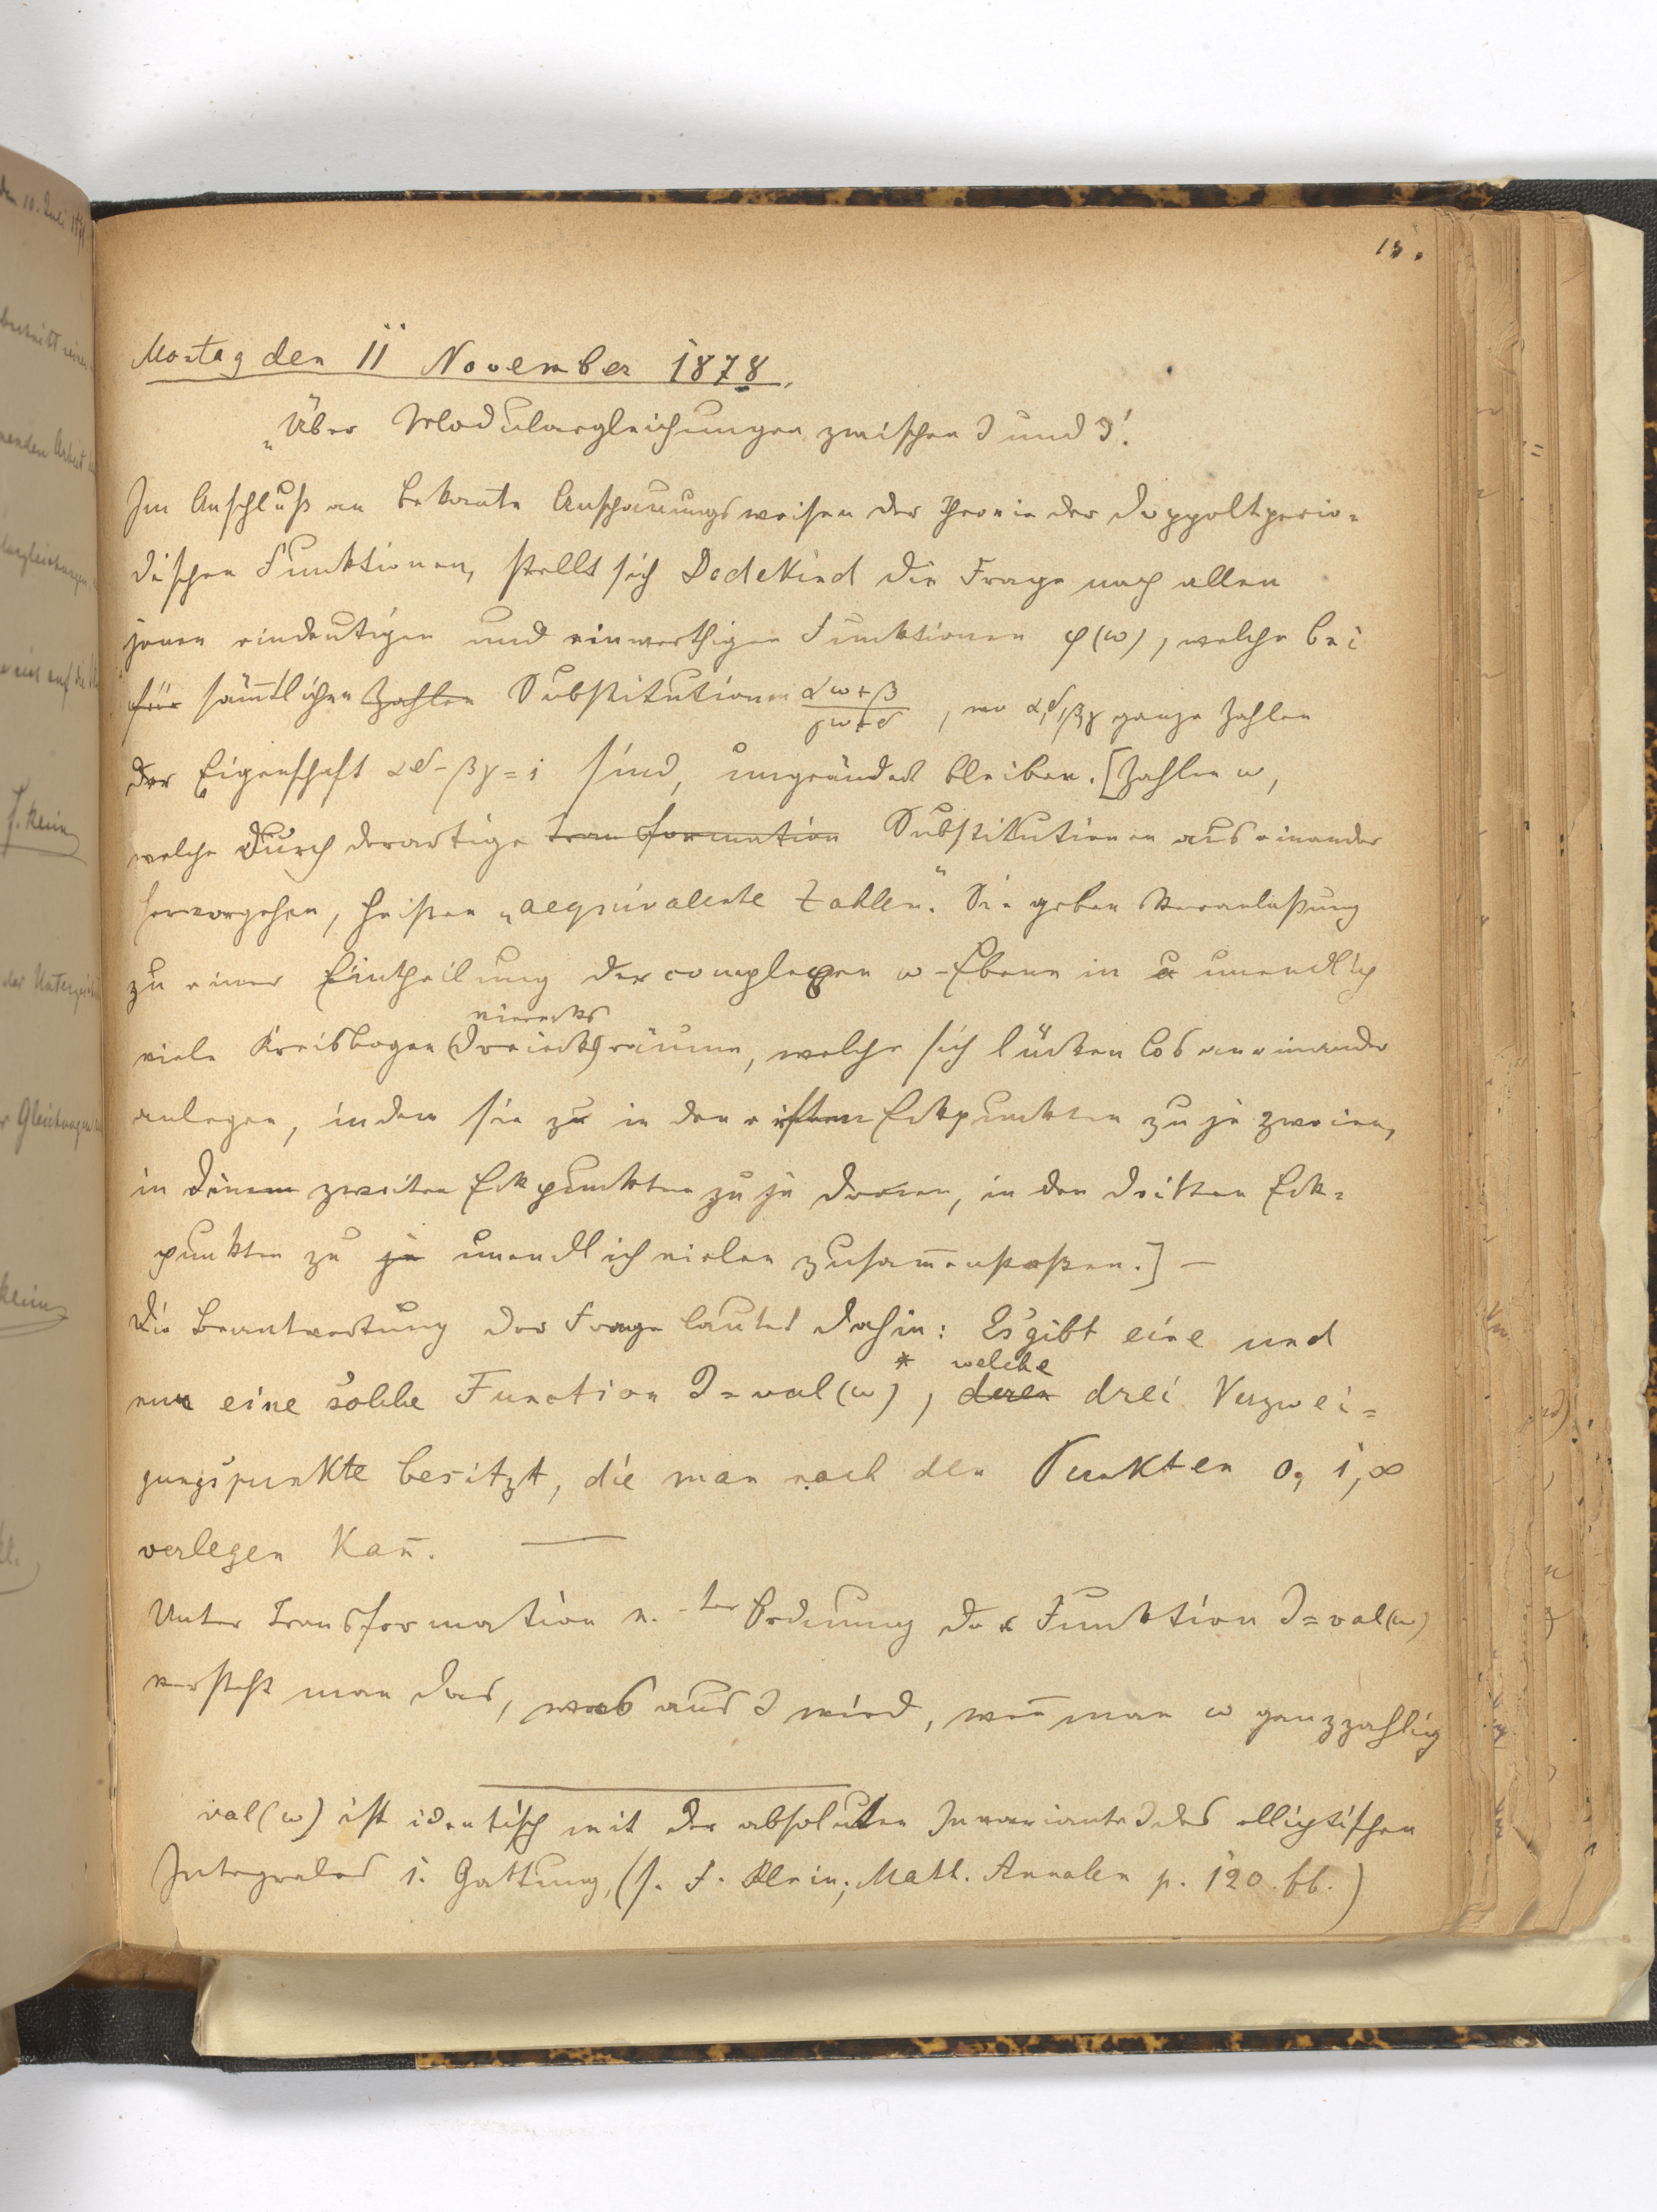 15.
Montag den 11 November 1878.
„Über Modulargleichungen zwischen J und J'.
Im Anschluß an bekannte Anschauungsweisen der Theorie der doppeltperio=
dischen Funktionen, stellt sich Dedekind die Frage nach allen
jenen eindeutigen und einwerthigen Funktionen φ(ω), welche bei
für sämtlichen Zahlen Substitutionen (αω+β)/(γω+δ), wo α,δ,β,γ ganze Zahlen
der Eigenschaft αδ-βγ=1 sind, ungeändert bleiben. [Zahlen ω,
welche durch derartige transformation Substitutionen aus einander
hervorgehen, heißen „aequivalente Zahlen." Sie geben Veranlaßung
zu einer Eintheilung der complexen ω-Ebene in unendlich
vierecks
viele Kreisbogen(dreiecks)räume, welche sich lückenlos an einander
anlegen, indem sie zu in den ersten Eckpunkten zu je zweien,
in den zweiten Eckpunkten zu je dreien, in den dritten Eck=
punkten zu je unendlich vielen zusam̄enstoßen.] —
Die Beantwortung der Frage lautet dahin: Es gibt eine und
* welche
nur eine solche Function J=val(ω), deren drei Verzwei=
gungspunkte besitzt, die man nach den Punkten 0, 1, ∞
verlegen kan̄. —
Unter Transformation n.-ter Ordnung der Funktion J=val(ω)
versteht man das, was aus J wird, wen̄ man ω ganzzahlig
val(ω) ist identisch mit der absoluten Invariante J des elliptischen
Integrales 1. Gattung, (s. F. Klein; Math. Annalen p. 120 ff.)
den 10. Juli 187
F. Klein
Klein